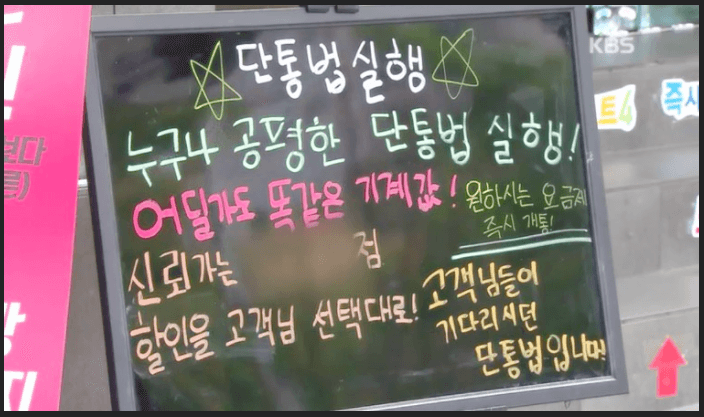 KBS
☆단통법실행☆
누구나 공평한 단통법 실행!
어딜가도 똑같은 기계값!
원하시는 요금제
즉시 개통!
신뢰가는 점
할인을 고객님 선택대로!
고객님들이
기다리시던
단통법입니다!
트4
즉시